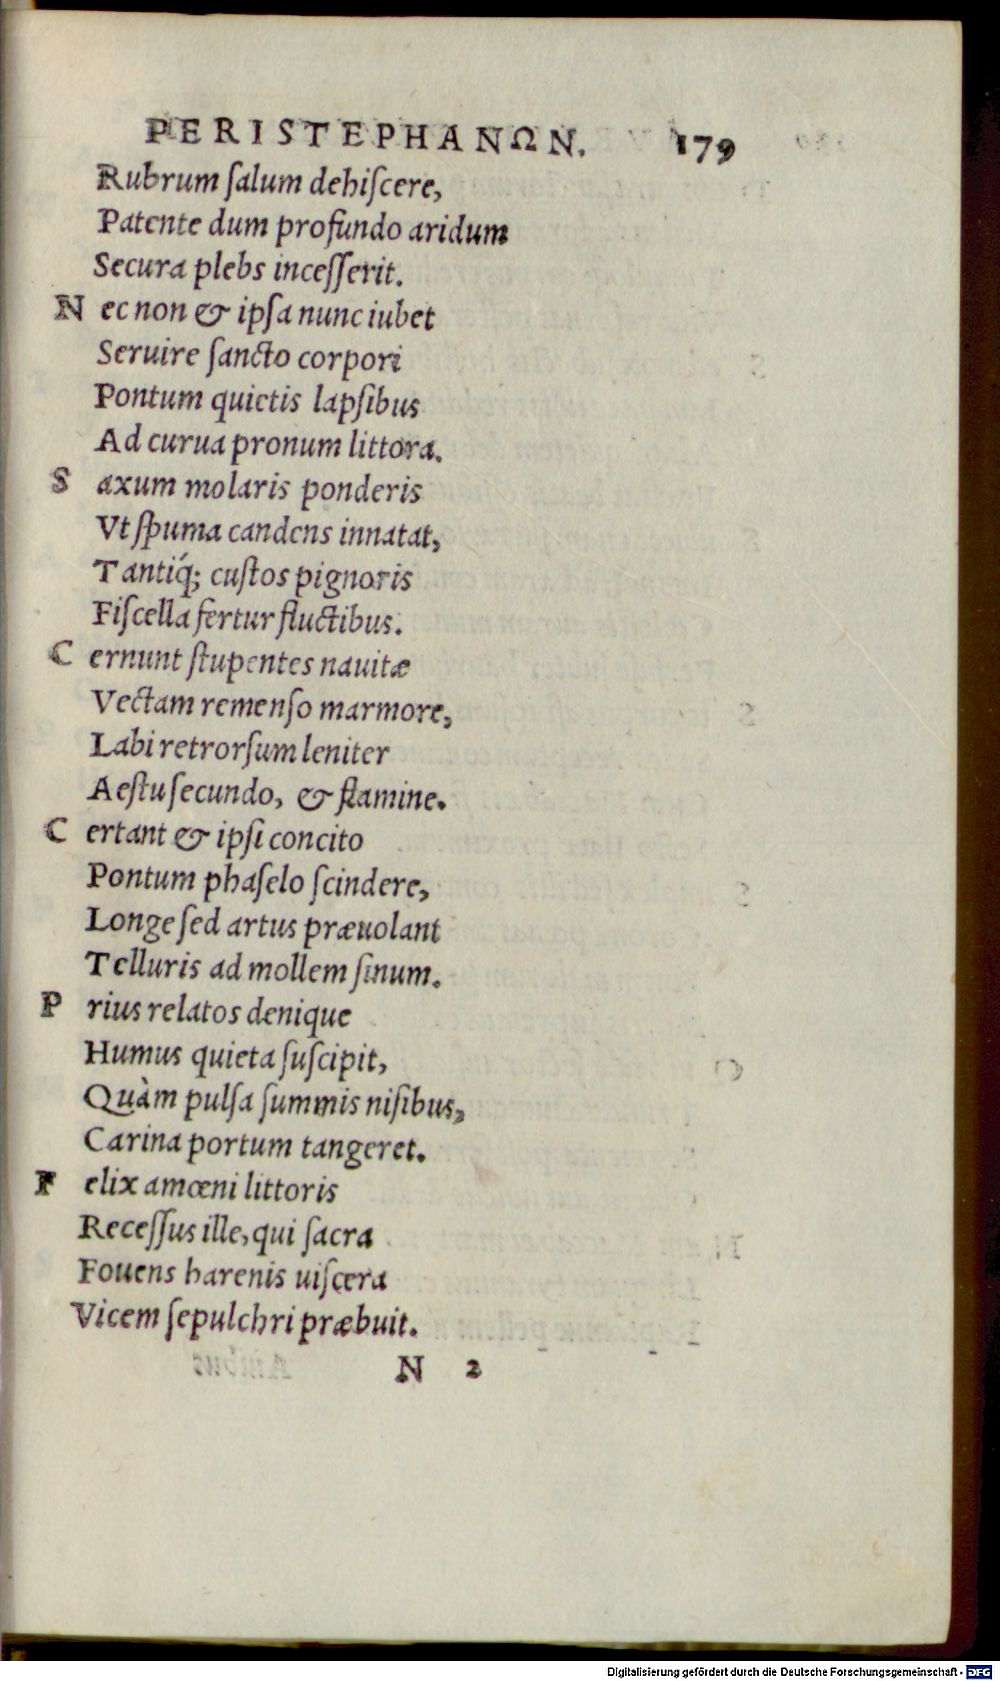 PERISTEPHANΩN. 179
Rubrum ſalum dehiſcere,
Patente dum profundo aridum
Secura plebs inceſſerit.
N ec non & ipſa nunc iubet
Seruire ſancto corpori
Pontum quietis lapſibus
Ad curua pronum littora.
S axum molaris ponderis
Vt ſpuma candens innatat,
Tantiq́; cuſtos pignoris
Fiſcella fertur fluctibus.
C ernunt ſtupentes nauitæ
Vectam remenſo marmore,
Labi retrorſum leniter
Aeſtu ſecundo, & flamine.
C ertant & ipſi concito
Pontum phaſelo ſcindere,
Longe ſed artus præuolant
Telluris ad mollem ſinum.
P rius relatos denique
Humus quieta ſuſcipit,
Quàm pulſa ſummis niſibus,
Carina portum tangeret.
F elix amœni littoris
Receſſus ille, qui ſacra
Fouens harenis uiſcera
Vicem ſepulchri præbuit.
N 2
Digitalisierung gefördert durch die Deutsche Forschungsgemeinschaft - DFG